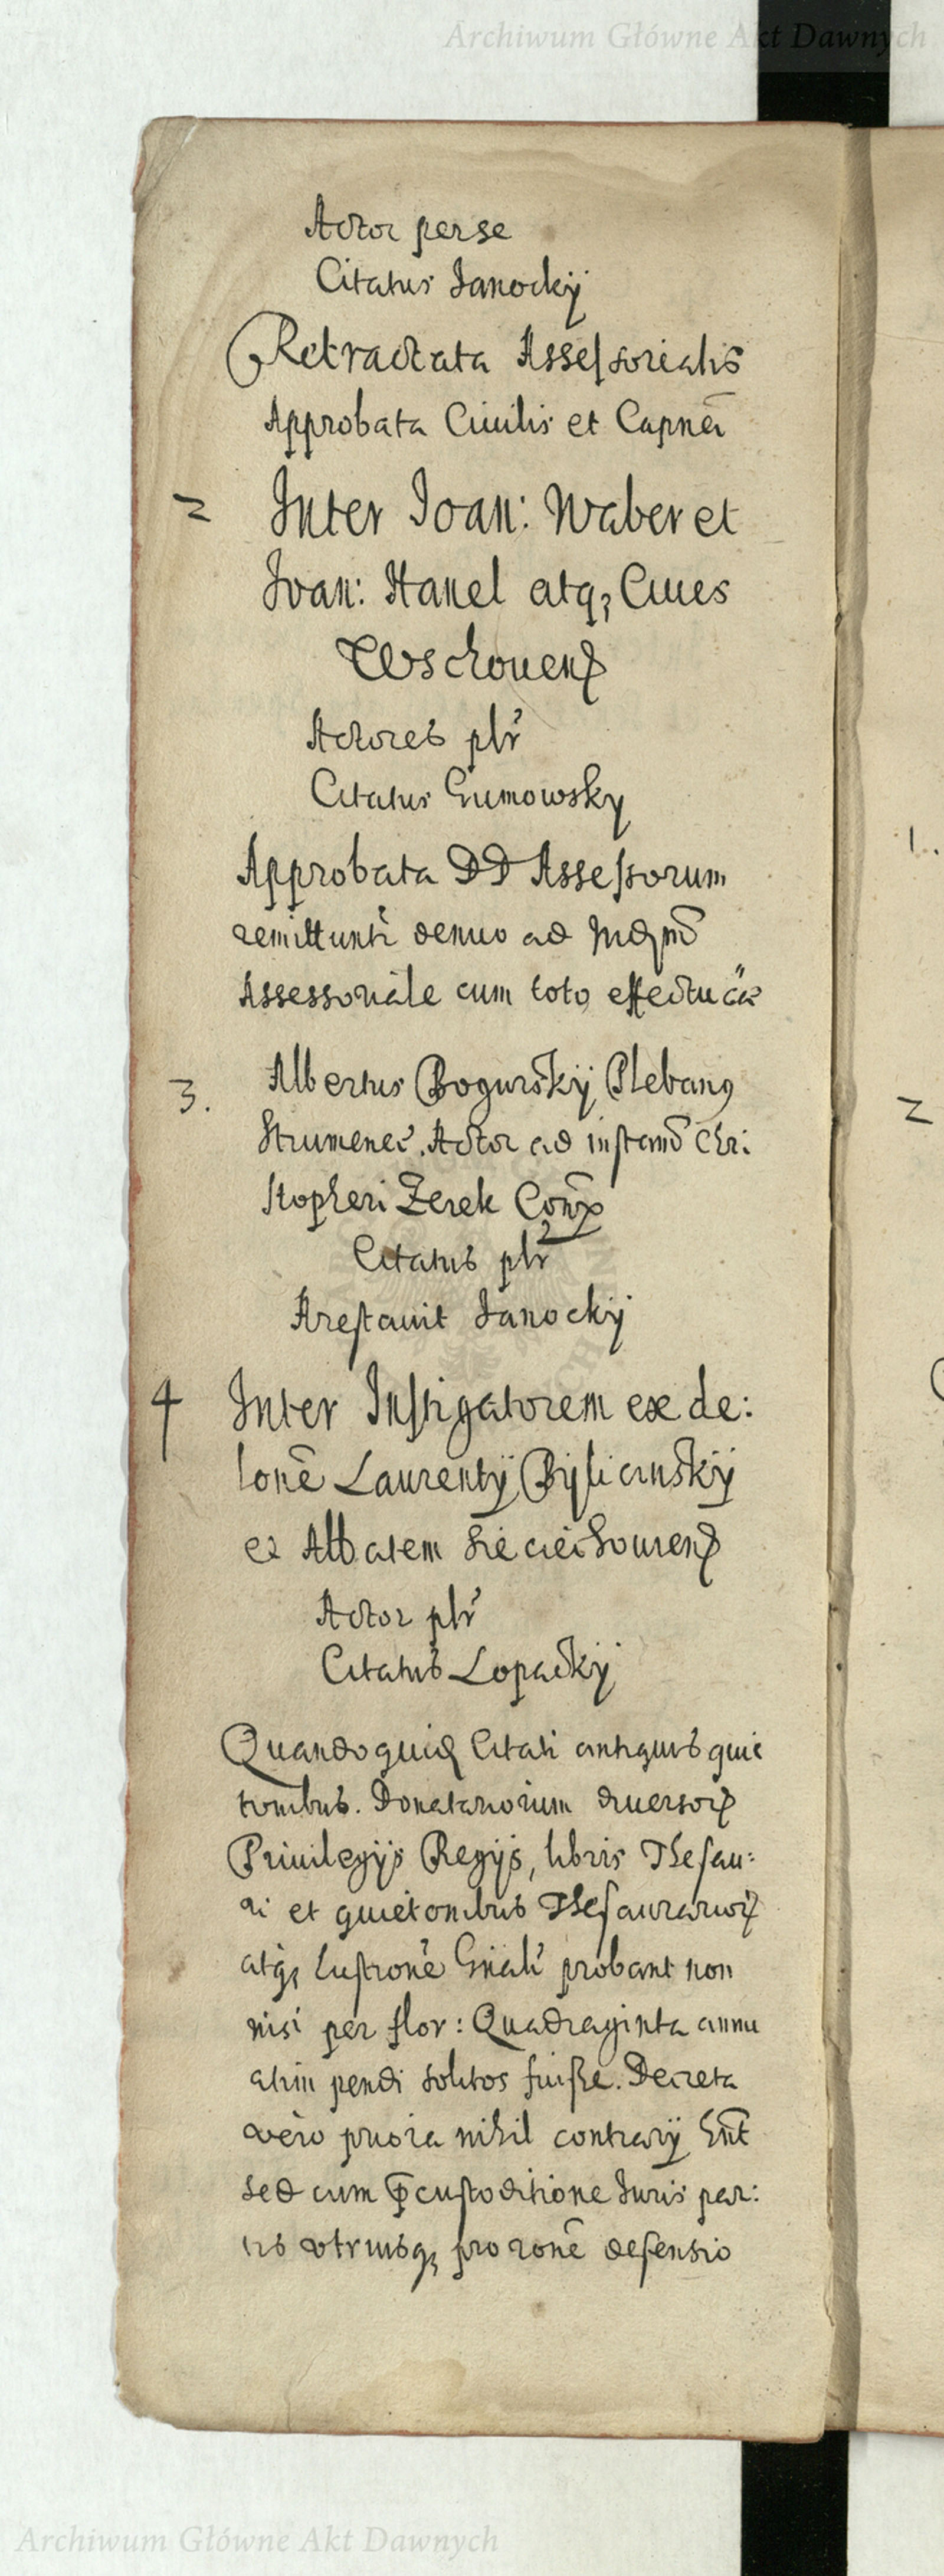 Archiwum Główne Akt Dawnych
Actor per se
Citatus Janockÿ
Retractata Assessorialis
Approbata Ciuilis et Capnea
2 Inter Joan: Waber et
Joan: Hanel atq; Ciues
Wschouens
Actores plr
Citatus Gumowsky
Approbata DD Assessorum
remittuntr denuo ad
Assessoriale cum toto effectu
3. Albertus Bogurskÿ Pleban9
Strumenec. Actor ad instam Chri:
stopheri Zerek
Citatus plr
Arestauit Janockÿ
4 Inter Instigatorem ex de:
lone Laurentÿ
et Abbatem Sieciechouiens
Actor plr
Citatus Lopackÿ
Quandoquid Citati antiquis quie
tonibus. Donatariorum diuersor
Priuilegÿs Regÿs, libris Thesau:
ri et quietonibus Thesaurarior
atq; lustrone Gnali probant non
nisi per flor: Quadraginta annu
atim pendi solitos fuisse. Decreta
vero priora nihil contrarÿ hnt
sed cum custoditione Juris par:
tis vtriusq; pro rone defensio
1.
2
Archiwum Główne Akt Dawnych